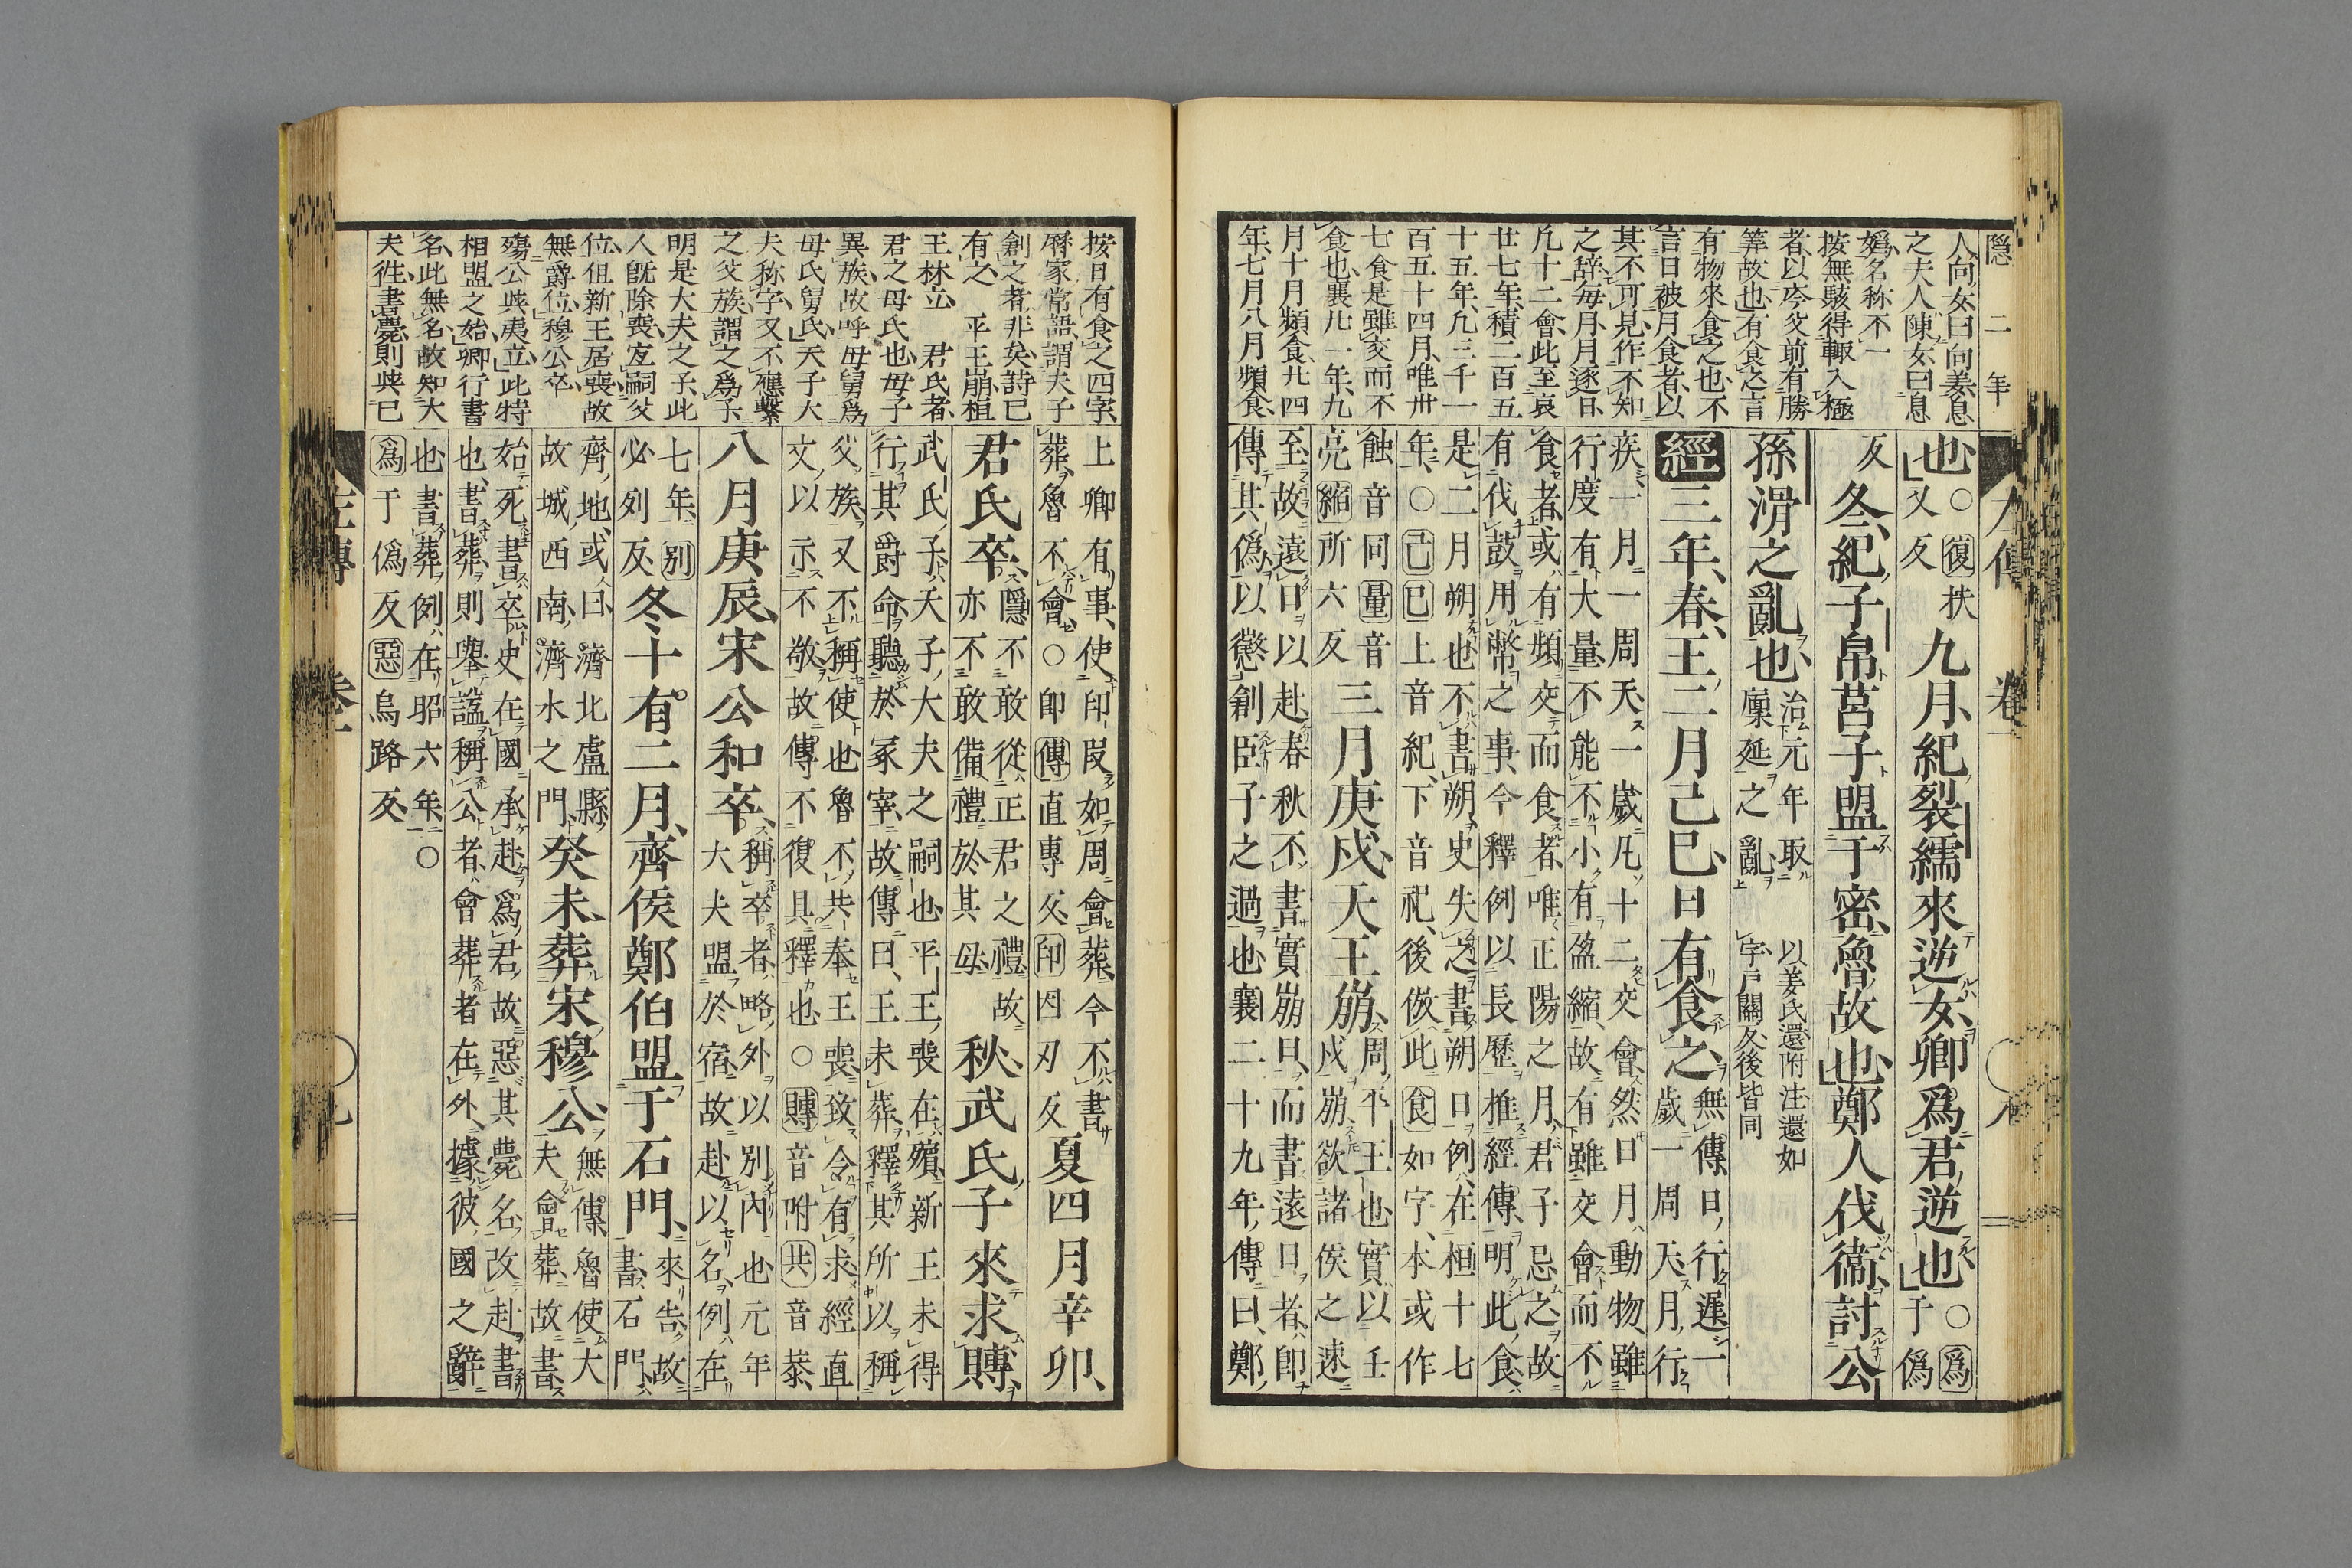 隱二年
左傳 卷一 八
人向女曰向姜息
之夫人陳女曰息
嬀名称不一
按無駭得輙入極
者以庈父前有勝
筭故也有食之言
有物來食之也不
言日被月食者以
其不可見作不知
之辞每月月逐日
凢十二會此至哀
廿七年積二百五
十五年凢三千一
百五十四月唯卅
七食是雖交而不
食也襄廿一年九
月十月頻食廿四
年七月八月頻食
也○復扶又反九月紀裂繻來逆女卿爲君逆也○爲于僞
反冬紀子帛莒子盟于密魯故也鄭人伐衞討公
孫滑之亂也治元年取廩延之亂以姜氏還附注還如字戶關反後皆同
經三年春王二月己巳日有食之無傳日行遲一歲一周天月行
疾一月一周天一歲凢十二交會然日月動物雖
行度有大量不能不小有盈縮故有雖交會而不
食者或有頻交而食者唯正陽之月君子忌之故
有伐鼓用幣之事今釋例以長歷推經傳明此食
是二月朔也不書朔史失之書朔日例在桓十七
年○己巳上音紀下音祀後倣此食如字本或作
蝕音同量音亮縮所六反三月庚戌天王崩周平王也實以壬戌崩欲諸侯之速
至故遠日以赴春秋不書實崩日而書遠日者即
傳其僞以懲創臣子之過也襄二十九年傳曰鄭
按日有食之四字
曆家常語謂夫子
創之者非矣詩已
有之
王林立　平王崩桓
君之母氏也母子　君氏者
異族故呼母舅爲
母氏舅氏天子大
夫称字又不應繫
之父族謂之爲子
明是大夫之子此
人旣除喪宜嗣父
位但新王居喪故
無爵位穆公卒
殤公與夷立此特
相盟之始卿行書
名此無名故知大
夫徃書薨則與已
上卿有事使印段如周會葬今不書
葬魯不會○印傳直專反印因刃反夏四月辛卯
君氏卒隱不敢從正君之禮故亦不敢備禮於其母秋武氏子來求賻
武氏子天子大夫之嗣也平王喪在殯新王未得
行其爵命聽於冢宰故傳曰王未葬釋其所以稱
父族又不稱使也魯不共奉王喪致令有求經直
文以示不敬故傳不復具釋也○賻音附共音恭
八月庚辰宋公和卒稱卒者略外以別內也元年大夫盟於宿故赴以名例在
七年別必列反冬十有二月齊侯鄭伯盟于石門來告故書石門
齊地或曰濟北盧縣故城西南濟水之門癸未葬宋穆公無傳魯使大夫會葬故書
始死書卒史在國承赴爲君故惡其薨名改赴書
也書葬則舉謚稱公者會葬者在外據彼國之辭
也書葬例在昭六年○
爲于僞反惡烏路反
左傳 卷一 九